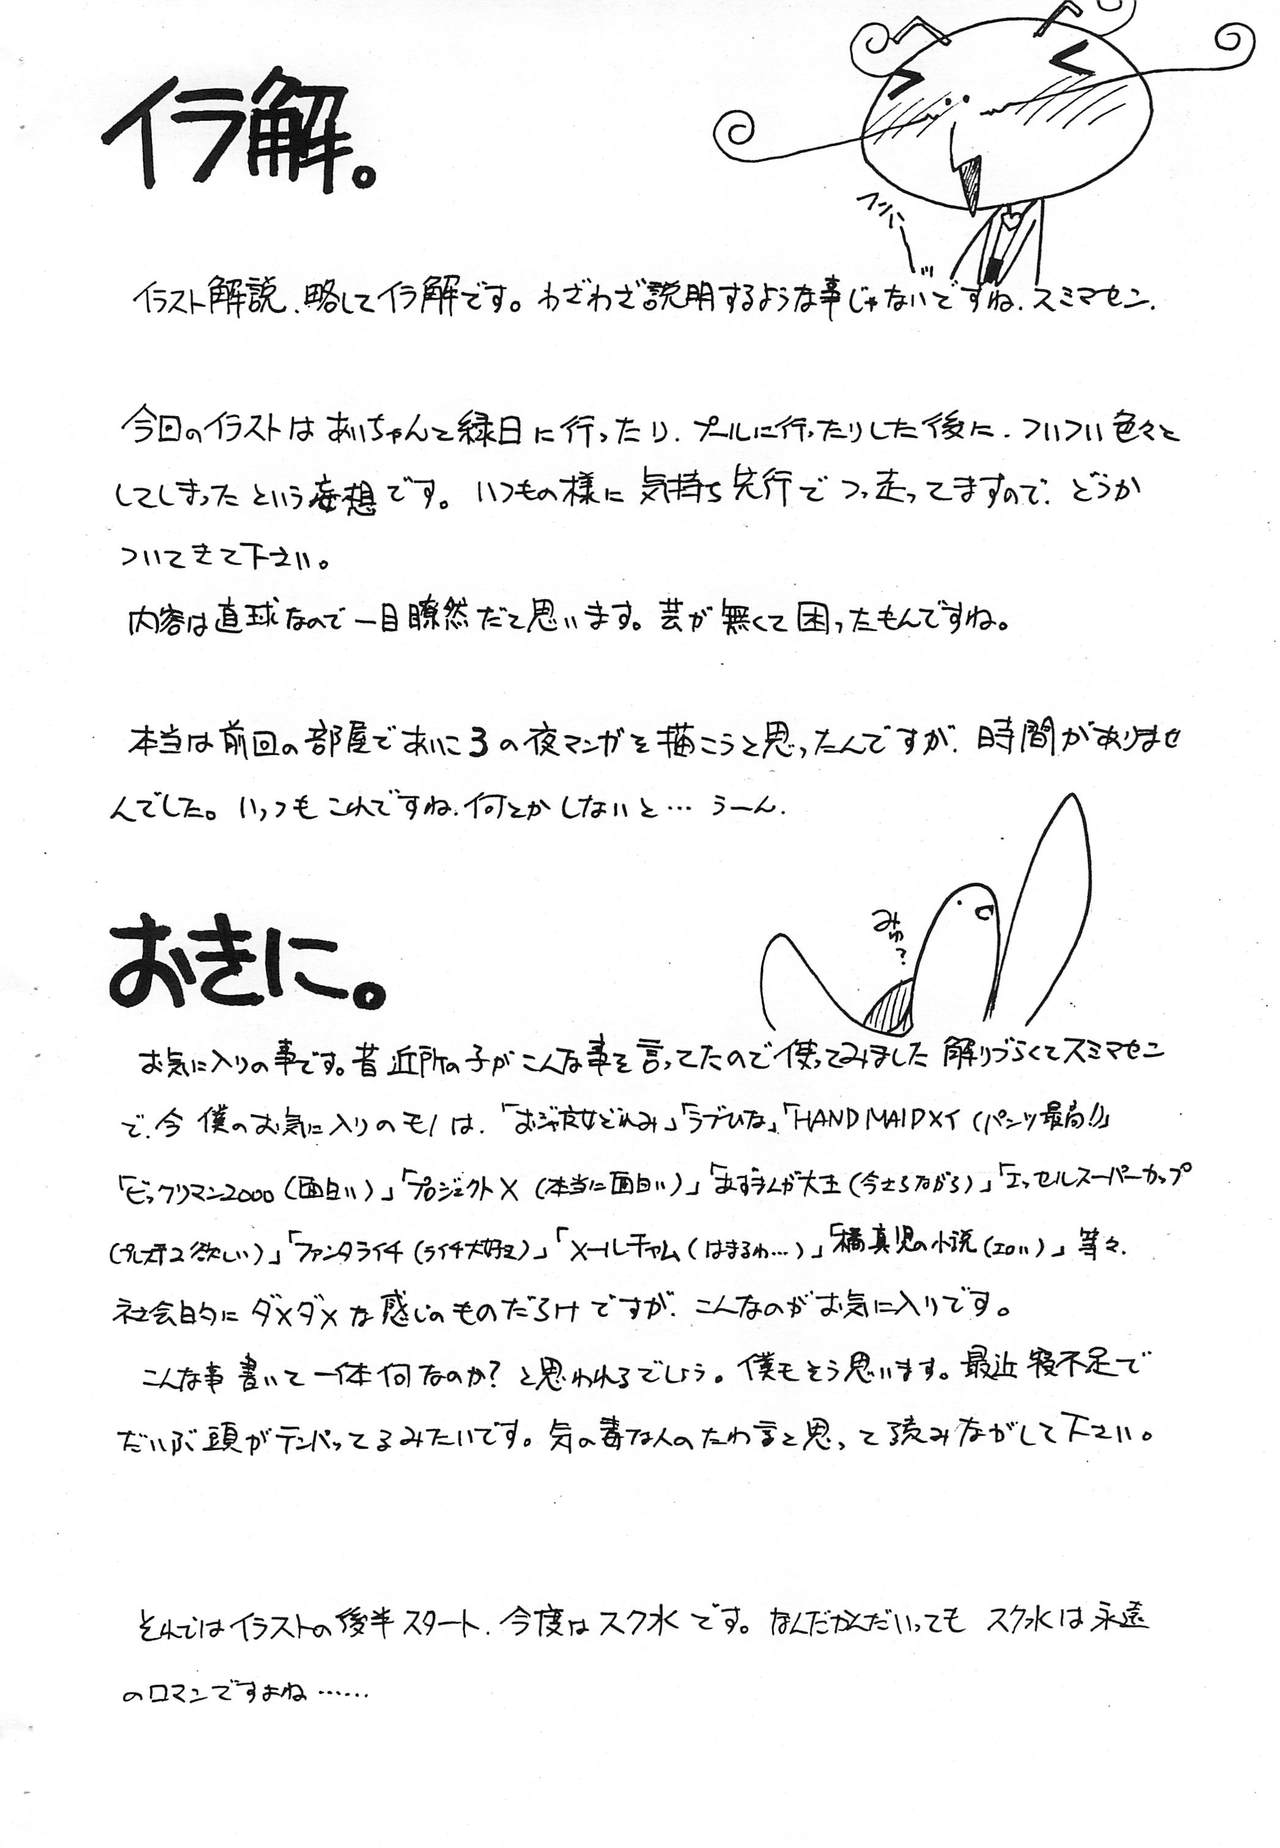 イラ解。
フシハ
イラスト解説、略してイラ解です。わざわざ説明するような事じゃないですね、スミマセン.
今回のイラストはあいちゃんと縁日に行ったり、プールに行ったりした後に、ついつい色々と
してしまったという妄想です。いつもの様に気持ち先行でつっ走ってますので、どうか
ついてきて下さい。
内容は直球なので一目瞭然だと思います。芸が無くて困ったもんですね。
本当は前回の部屋であいこ3の夜マンガを描こうと思ったんですが、時間がありませ
んでした。いっつもこれですね、何とかしないと…うーん.
おきに。
みゅ?
お気に入りの事です。昔近所の子がこんな事を言ってたので使ってみました 解りづらくてスミマセン
で、今僕のお気に入りのモノは、「おジャ魔女どれみ」「ラブひな」「HAND MAIDメイ(パンツ最高!!)」
「ビックリマン2000(面白い)」「プロジェクトX(本当に面白い)」「あずまんが大王(今さらながら)」「エッセルスーパーカップ
(プレステ2欲しい)」「ファンタライチ(ライチ大好き)」「メールチャム(はまるわ…)」「橘真児の小説(エロい)」等々.
社会的にダメダメな感じのものだらけですが、こんなのがお気に入りです。
こんな事書いて一体何なのか?と思われるでしょう。僕もそう思います。最近寝不足で
だいぶ頭がテンパってるみたいです。気の毒な人のたわ言と思って読みながして下さい。
それではイラストの後半スタート、今度はスク水です。なんだかんだいってもスク水は永遠
のロマンですよね……